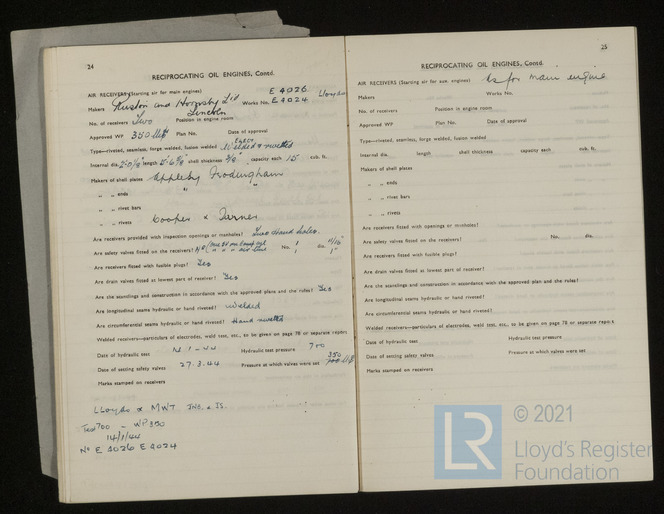 24
RECIPROCATING OIL ENGINES, Contd.
AIR RECEIVERS (Starting air for main engines)
E 4026 Lloyds
Makers Ruston and Hornsby Ltd Works No. E 4024
Lincoln
No. of receivers Two Position in engine room
Approved WP 350 Plan No. Date of approval
Type—riveted, seamless, forge welded, fusion welded Welded & riveted
Internal dia. length shell thickness capacity each 15 cub. ft.
Makers of shell plates Appleby Frodingham
" " ends "
" " rivet bars
" " rivets Cooper & Turner
Are receivers provided with inspection openings or manholes? Two hand holes.
Are safety valves fitted on the receivers? No. 1 dia. 11/16"
1 1"
Are receivers fitted with fusible plugs? Yes
Are drain valves fitted at lowest part of receiver? Yes
Are the standings and construction in accordance with the approved plans and the rules? Yes
Are longitudinal seams hydraulic or hand riveted? Welded
Are circumferential seams hydraulic or hand riveted? Hand riveted
Welded receivers—particulars of electrodes, weld test, etc., to be given on page 78 or separate report
Date of hydraulic test 14-1-44 Hydraulic test pressure 700
350
Date of setting safety valves 27.3.44 Pressure at which valves were set
Marks stamped on receivers
Lloyds & MWT
Test 700 - WP 350
14/1/44
No E 4026 E 4024
25
RECIPROCATING OIL ENGINES, Contd.
AIR RECEIVERS (Starting air for aux. engines) As for main engine
Makers Works No.
No. of receivers Position in engine room
Approved WP Plan No. Date of approval
Type—riveted, seamless, forge welded, fusion welded
Internal dia. length shell thickness capacity each cub. ft.
Makers of shell plates
" " ends
" " rivet bars
" " rivets
Are receivers fitted with openings or manholes?
Are safety valves fitted on the receivers? No. dia.
Are receivers fitted with fusible plugs?
Are drain valves fitted at lowest part of receiver?
Are the standings and construction in accordance with the approved plan and the rules?
Are longitudinal seams hydraulic or hand riveted?
Are circumferential seams hydraulic or hand riveted?
Welded receivers—particulars of electrodes, weld test, etc., to be given on page 78 or separate report
Date of hydraulic test Hydraulic test pressure
Date of setting safety valves Pressure at which valves were set
Marks stamped on receivers
LR © 2021
Lloyd's Register
Foundation